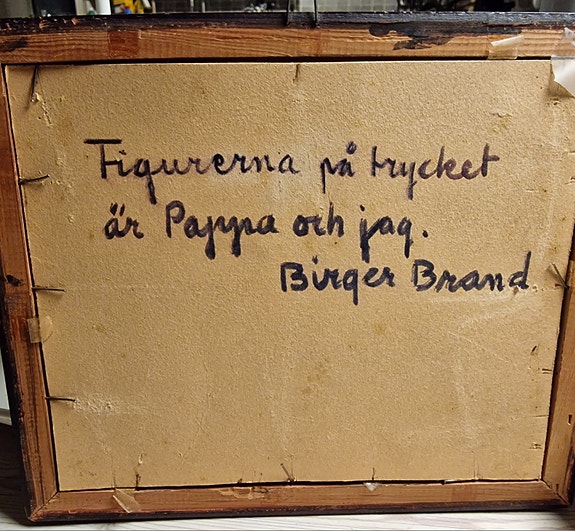 Figurerna på trycket
är Pappa och jag.
Birger Brand